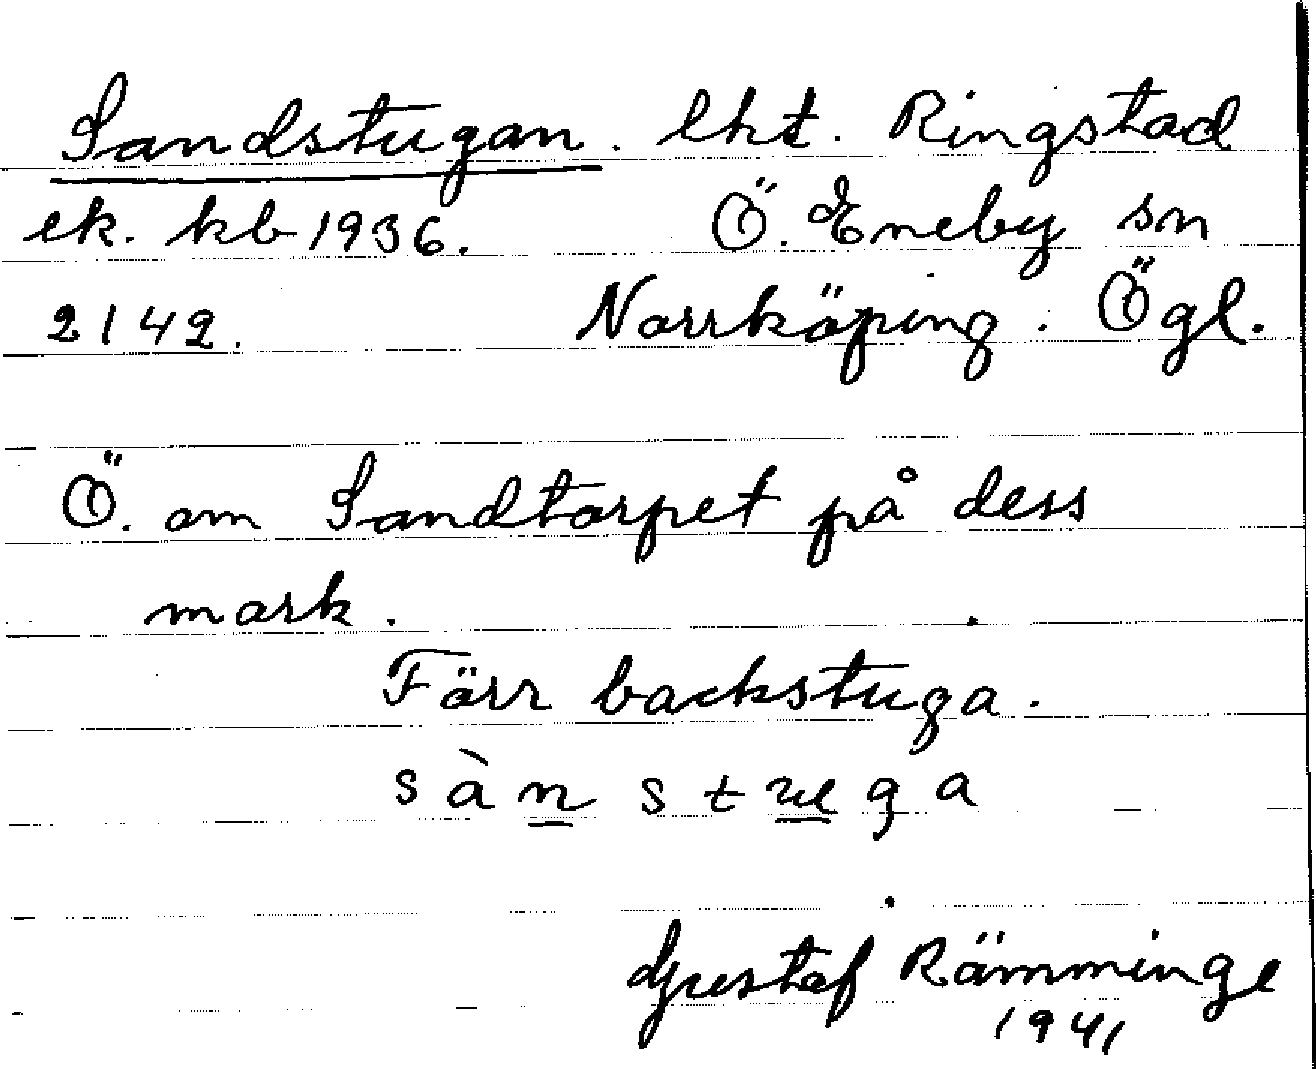 Sandstugan. lht. Ringstad
ek. kb 1936. Ö. Eneby sn
2142. Norrköping. Ögl.
Ö. om Sandtorpet på dess
mark.
Förr backstuga.
sàn st ga
Gustaf Rämminge
1941